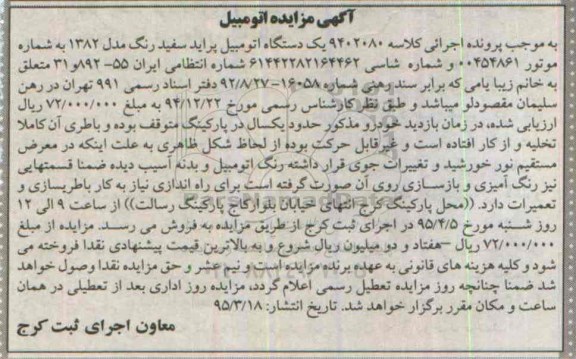 آگهی مزایده اتومبیل
به موجب پرونده اجرائی کلاسه ۹۴۰۲۰۸۰ یک دستگاه اتومبیل پراید سفید رنگ مدل ۱۳۸۲ به شماره
موتور ۰۰۴۵۴۸۶۱ و شماره شاسی ۶۱۴۴۲۲۸۲۱۶۴۴۶۲ شماره انتظامی ایران ۵۵- ۸۹۲و۳۱ متعلق
به خانم زیبا یامی که برابر سند رهنی شماره ۱۶۰۵۸-۹۲/۸/۲۷ دفتر اسناد رسمی ۹۹۱ تهران در رهن
سلیمان مقصودلو میباشد و طبق نظر کارشناس رسمی مورخ ۹۴/۱۲/۲۲ به مبلغ ۷۲/۰۰۰/۰۰۰ ریال
ارزیابی شده، در زمان بازدید خودرو مذکور حدود یکسال در پارکینگ متوقف بوده و باطری آن کاملا
تخلیه و از کار افتاده است و غیرقابل حرکت بوده از لحاظ شکل ظاهری به علت اینکه در معرض
مستقیم نور خورشید و تغییرات جوی قرار داشته رنگ اتومبیل و بدنه آسیب دیده ضمنا قسمتهایی
نیز رنگ آمیزی و بازسازی روی آن صورت گرفته است برای راه اندازی نیاز به کار باطریسازی و
تعمیرات دارد. ((محل پارکینگ کرج انتهای خیابان بلوارگاج پارکینگ رسالت)) از ساعت ۹ الی ۱۲
روز شنبه مورخ ۹۵/۴/۵ در اجرای ثبت کرج از طریق مزایده به فروش می رسد. مزایده از مبلغ
۷۲/۰۰۰/۰۰۰ ریال -هفتاد و دو میلیون ریال شروع و به بالاترین قیمت پیشنهادی نقدا فروخته می
شود و کلیه هزینه های قانونی به عهده برنده مزایده است و نیم عشر و حق مزایده نقدا وصول خواهد
شد ضمنا چنانچه روز مزایده تعطیل رسمی اعلام گردد، مزایده روز اداری بعد از تعطیلی در همان
ساعت و مکان مقرر برگزار خواهد شد. تاریخ انتشار: ۹۵/۳/۱۸
معاون اجرای ثبت کرج